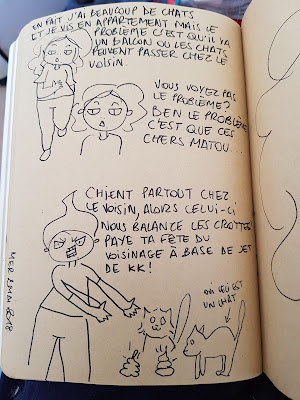 EN FAIT J'AI BEAUCOUP DE CHATS
ET JE VIS EN APPARTEMENT MAIS LE
PROBLEME C'EST QU'IL Y A
UN BALCON OU LES CHATS
PEUVENT PASSER CHEZ LE
VOISIN.
VOUS VOYEZ PAS
LE PROBLÈME?
BEN LE PROBLÈME
C'EST QUE CES
CHERS MATOU...
CHIENT PARTOUT CHEZ
LE VOISIN, ALORS CELUI-CI
NOUS BALANCE LES CROTTES!
PAYE TA FÊTE DU
VOISINAGE À BASE DE JET
DE KK!
OUI CECI EST
UN CHAT
2018